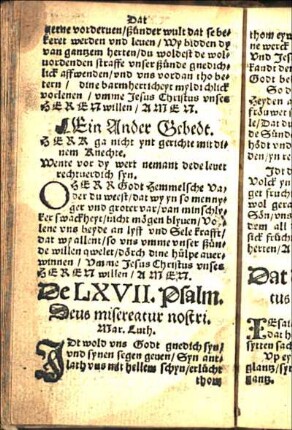 Dat
gerne vorderuen/sünder wult dat se be-
keret werden vnd leuen / Wy bidden dy
van gantzem herten/du woldest de wol-
uordenden straffe vnser sünde gnedich-
lick affwenden/vnd vns vordan tho be-
tern / dine barmherticheyt myldichlick
vorlenen / vmme Jesus Christus vnses
HEREN willen / AMEN.
Ein Ander Gebedt.
HERR ga nicht ynt gerichte mit di-
nem Knechte.
Wente vor dy wert nemant dede leuet
rechtuerdich syn.
O HERR Godt Hemmelsche Va-
der du weist/dat wy yn so menny-
ger vnd groter var/van minschly-
ker swackheyt/nicht mögen blyuen/Vor-
lene vns beyde an lyff vnd Sele krafft/
dat wy allent/so vns vmme vnser sün-
de willen quelet/dörch dine hülpe auer-
winnen / Vmme Jesus Christus vnses
HEREN willen / AMEN.
De LXVII. Psalm.
Deus misereatur nostri.
Mar. Luth.
IDt wold vns Godt gnedich syn/
vnd synen segen geuen / Syn ant-
lath vns mit hellem schyn/erlücht
thom
thom ey
ne werck
Vnd Jes
kandt den
Godt be
So d
Heyden a
fröuwet
le/Dat du
de Sünde
hödt vnd
den/yn re
Idt d
Volck yn
get frucht
wol gera
Sön/vns
dem all
sick frücht
herten/A
Dat
tus
dat h
sytten sach
Vp ey
glantz/syn
gantz.